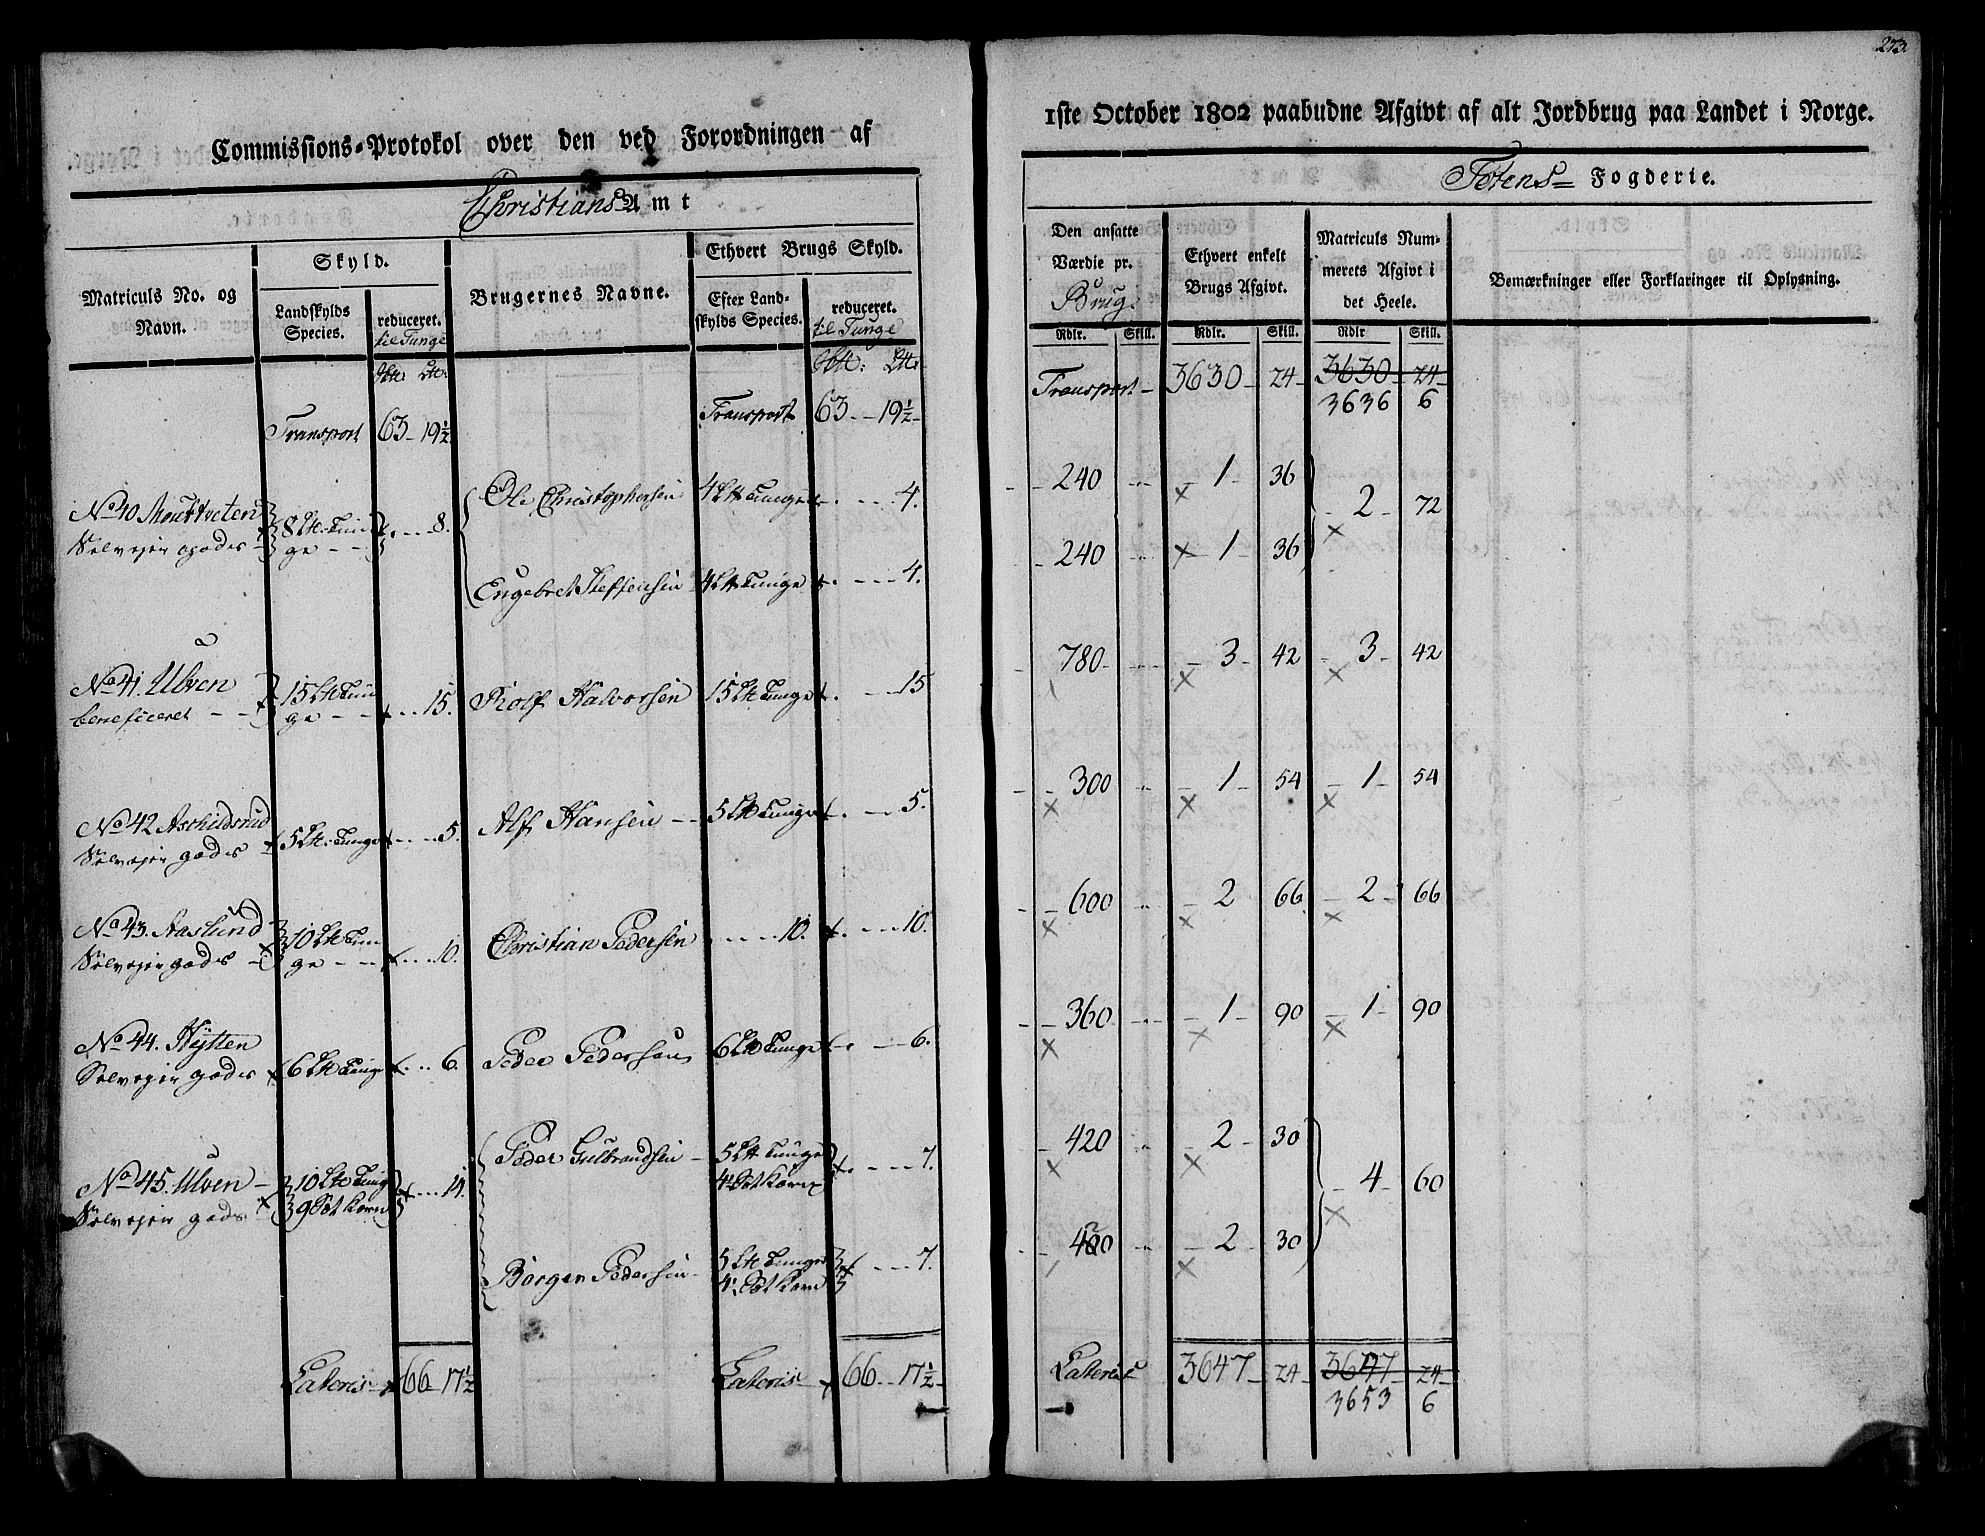 273.
Commissions-Protokol over den ved Forordningen af
1ste October 1802 paabudne Afgivt af alt Jordbrug paa Landet i Norge.
Christians Amt
Totens Fogderie.
Matriculs No. og Navn.
Skyld.
Landskylds Species.
reduceret. til Tunge
Brugernes Navne.
Ethvert Brugs Skyld.
Efter Landskylds Species.
reduceret. til Tunge
Den ansatte Værdie pr. Brug.
Ethvert enkelt Brugs Afgivt.
Matriculs Nummerets Afgivt i det Heele.
Bemærkninger eller Forklaringer til Oplysning.
Rdlr. Skill. Rdlr. Skill. Rdlr Skill.
Transport 63 - 19½ Transport 63 - 19½ Transport - 3630 - 24 - 3630 - 24 -
3636 6
No 40 Selvejer gods 8 Lt. Tunge 8.
Ole Christophersen 4 Lt Tunge 4. 240 1 36 2 72
Engebret Steffensen 4 Lt Tunge 4. 240 1 36
No 41. Ulven beneficeret 15 Lt Tunge 15. Rolf Halvorsen 15 Lt Tunge 15 780 3 42 3 42
No 42 Aschildsrud Selvejer gods 5 Lt. Tunge 5. Alf Hansen 5 Lt Tunge 5. 300 1 54 1 54
No 43. Aaslund Selvejer gods 10 Lt Tunge 10. Christian Pedersen 10. 10. 600 2 66 2 66
No 44. Hytten Selvejer gods 6 Lt Tunge 6. Peder Pedersen 6 Lt Tunge 6. 360 1 90 1 90
No 45. Ulven Selvejer gods 10 Lt Tunge 9 Set Korn 14.
Peder Gulbrandsen 5 Lt Tunge 4½ Set Korn 7. 420 2 30 4 60
Børger Pedersen 5 Lt Tunge 4½ Set Korn 7. 420 2 30
Lateris 66 17½ Lateris 66 17½ Lateris 3647 - 24 - 3647 - 24 -
3653 6